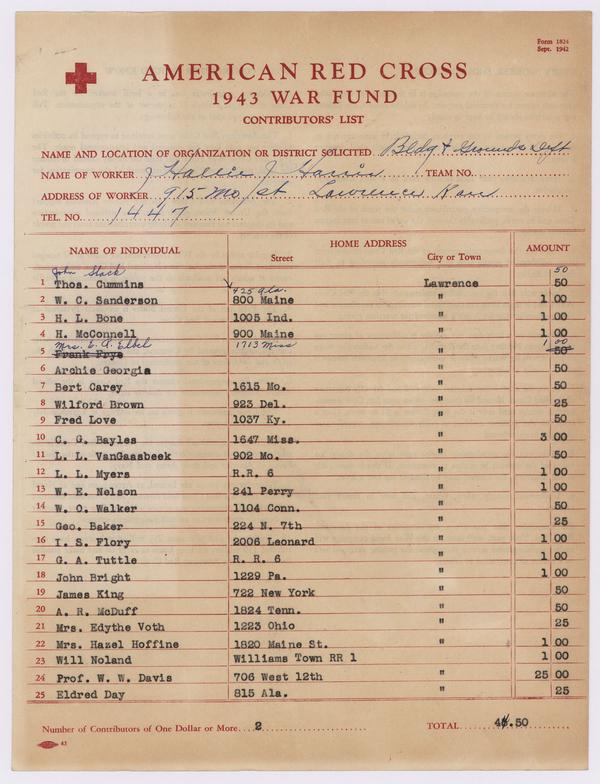 Form 1824
Sept. 1942
AMERICAN RED CROSS
1943 WAR FUND
CONTRIBUTORS' LIST
NAME AND LOCATION OF ORGANIZATION OR DISTRICT SOLICITED Bldg & Grounds Dept
NAME OF WORKER J Hallie J Harris TEAM NO.
ADDRESS OF WORKER 915 Mo/st Lawrence Kan
TEL. NO. 1447
NAME OF INDIVIDUAL HOME ADDRESS AMOUNT
Street City or Town
John Stack 50
1 Thos. Cummins Lawrence 50
425 Ala.
2 W. C. Sanderson 800 Maine " 1 00
3 H. L. Bone 1005 Ind. " 1 00
4 H. McConnell 900 Maine " 1 00
Mrs. E. A. Elbel 1713 Miss 1 00
5 Frank Frye " 50
6 Archie Georgia " 50
7 Bert Carey 1615 Mo. " 50
8 Wilford Brown 923 Del. " 25
9 Fred Love 1037 Ky. " 50
10 C. G. Bayles 1647 Miss. " 3 00
11 L. L. VanGaasbeek 902 Mo. " 50
12 L. L. Myers R.R. 6 " 1 00
13 W. E. Nelson 241 Perry " 1 00
14 W. O. Walker 1104 Conn. " 50
15 Geo. Baker 224 N. 7th " 25
16 I. S. Flory 2006 Leonard " 1 00
17 G. A. Tuttle R. R. 6 " 1 00
18 John Bright 1229 Pa. " 1 00
19 James King 722 New York " 50
20 A. R. McDuff 1824 Tenn. " 50
21 Mrs. Edythe Voth 1223 Ohio " 25
22 Mrs. Hazel Hoffine 1820 Maine St. " 1 00
23 Will Noland Williams Town RR 1 1 00
24 Prof. W. W. Davis 706 West 12th " 25 00
25 Eldred Day 815 Ala. " 25
Number of Contributors of One Dollar or More 2 TOTAL .50
43